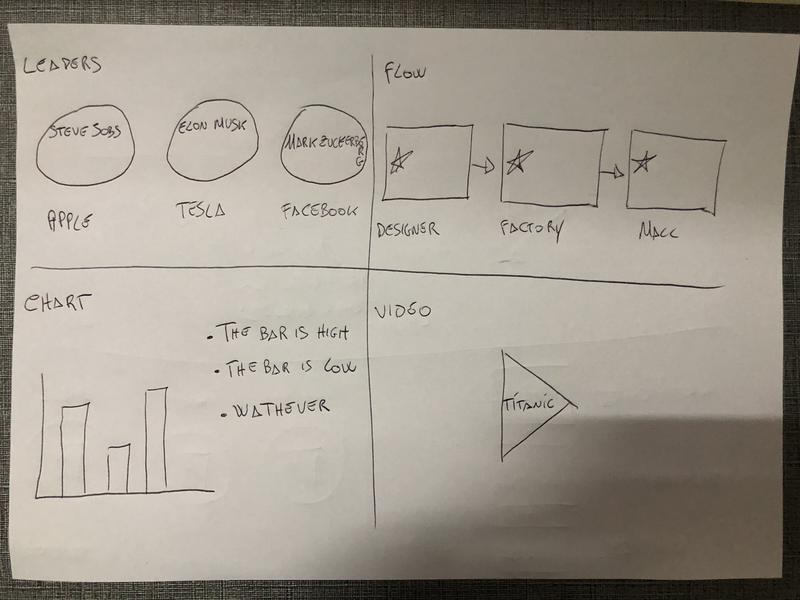 LEADERS
STEVE SOBS
ELON MUSK
MARK ZUCKERBERG
APPLE
TESLA
FACEBOOK
FLOW
DESIGNER
FACTORY
MALL
CHART
• THE BAR IS HIGH
• THE BAR IS LOW
• WATHEVER
VIDEO
TITANIC